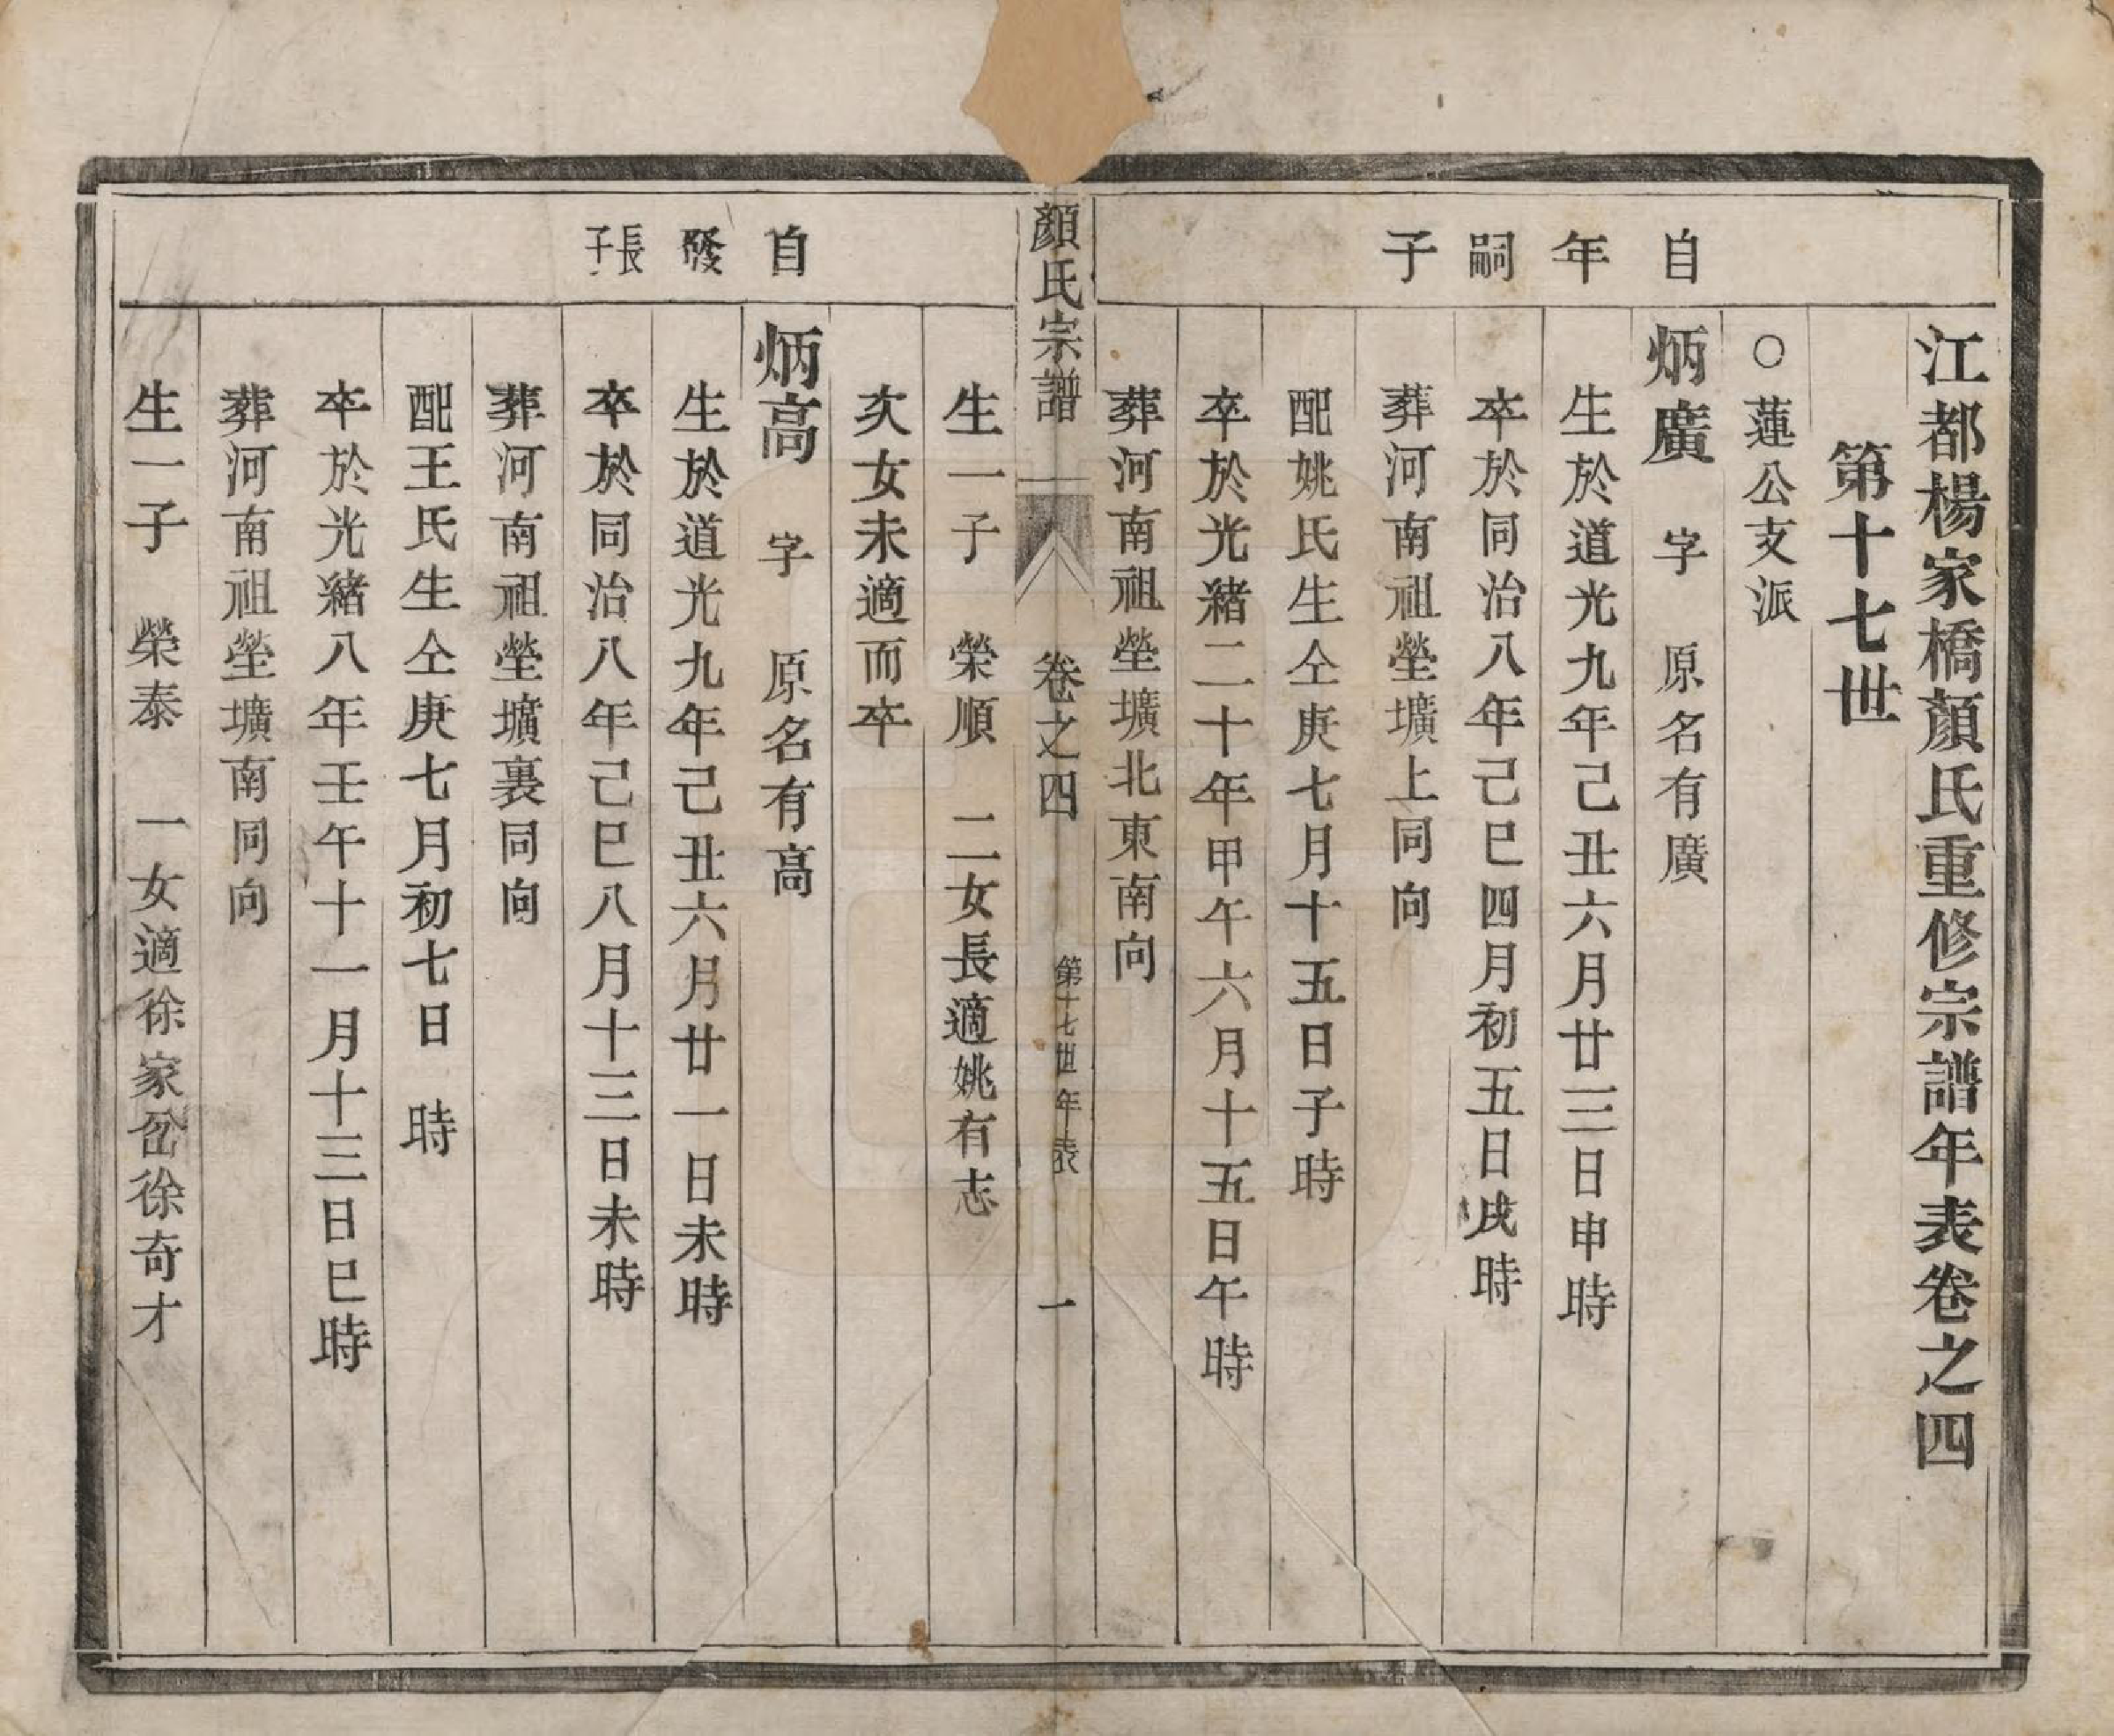 江都楊家橋顏氏重修宗譜年表卷之四
第十七世
○蓮公支派
自年嗣子
炳廣 字 原名有廣
生於道光九年己丑六月廿三日申時
卒於同治八年己巳四月初五日戌時
葬河南祖塋壙上同向
配姚氏生仝庚七月十五日子時
卒於光緒二十年甲午六月十五日午時
葬河南祖塋壙北東南向
顏氏宗譜 卷之四 第十七世年表 一
生一子 榮順 二女長適姚有志
次女未適而卒
自發長子
炳高 字 原名有高
生於道光九年己丑六月廿一日未時
卒於同治八年己巳八月十三日未時
葬河南祖塋壙裏同向
配王氏生仝庚七月初七日 時
卒於光緒八年壬午十一月十三日巳時
葬河南祖塋壙南同向
生一子 榮泰 一女適徐家岔徐奇才